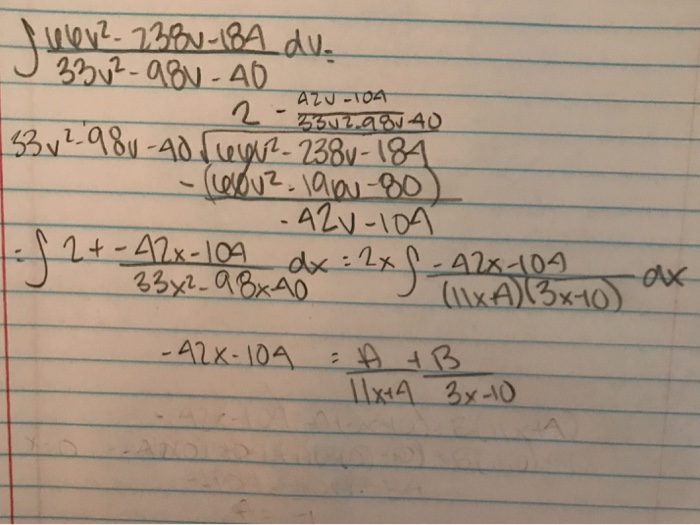 ∫ 66v² - 238v - 184 / 33v² - 98v - 40 dv =
2 - 42v - 104 / 33v² - 98v - 40
33v² - 98v - 40 √ 66v² - 238v - 184
- (66v² - 196v - 80)
- 42v - 104
= ∫ 2 + -42x - 104 / 33x² - 98x - 40 dx = 2x ∫ -42x - 104 / (11x+4)(3x-10) dx
-42x - 104 = A / 11x+4 + B / 3x-10